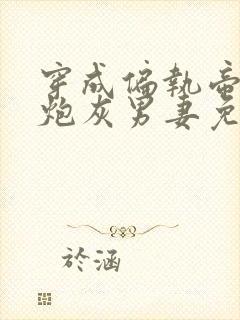 穿成偏執帝
炮灰男妻免
於涵